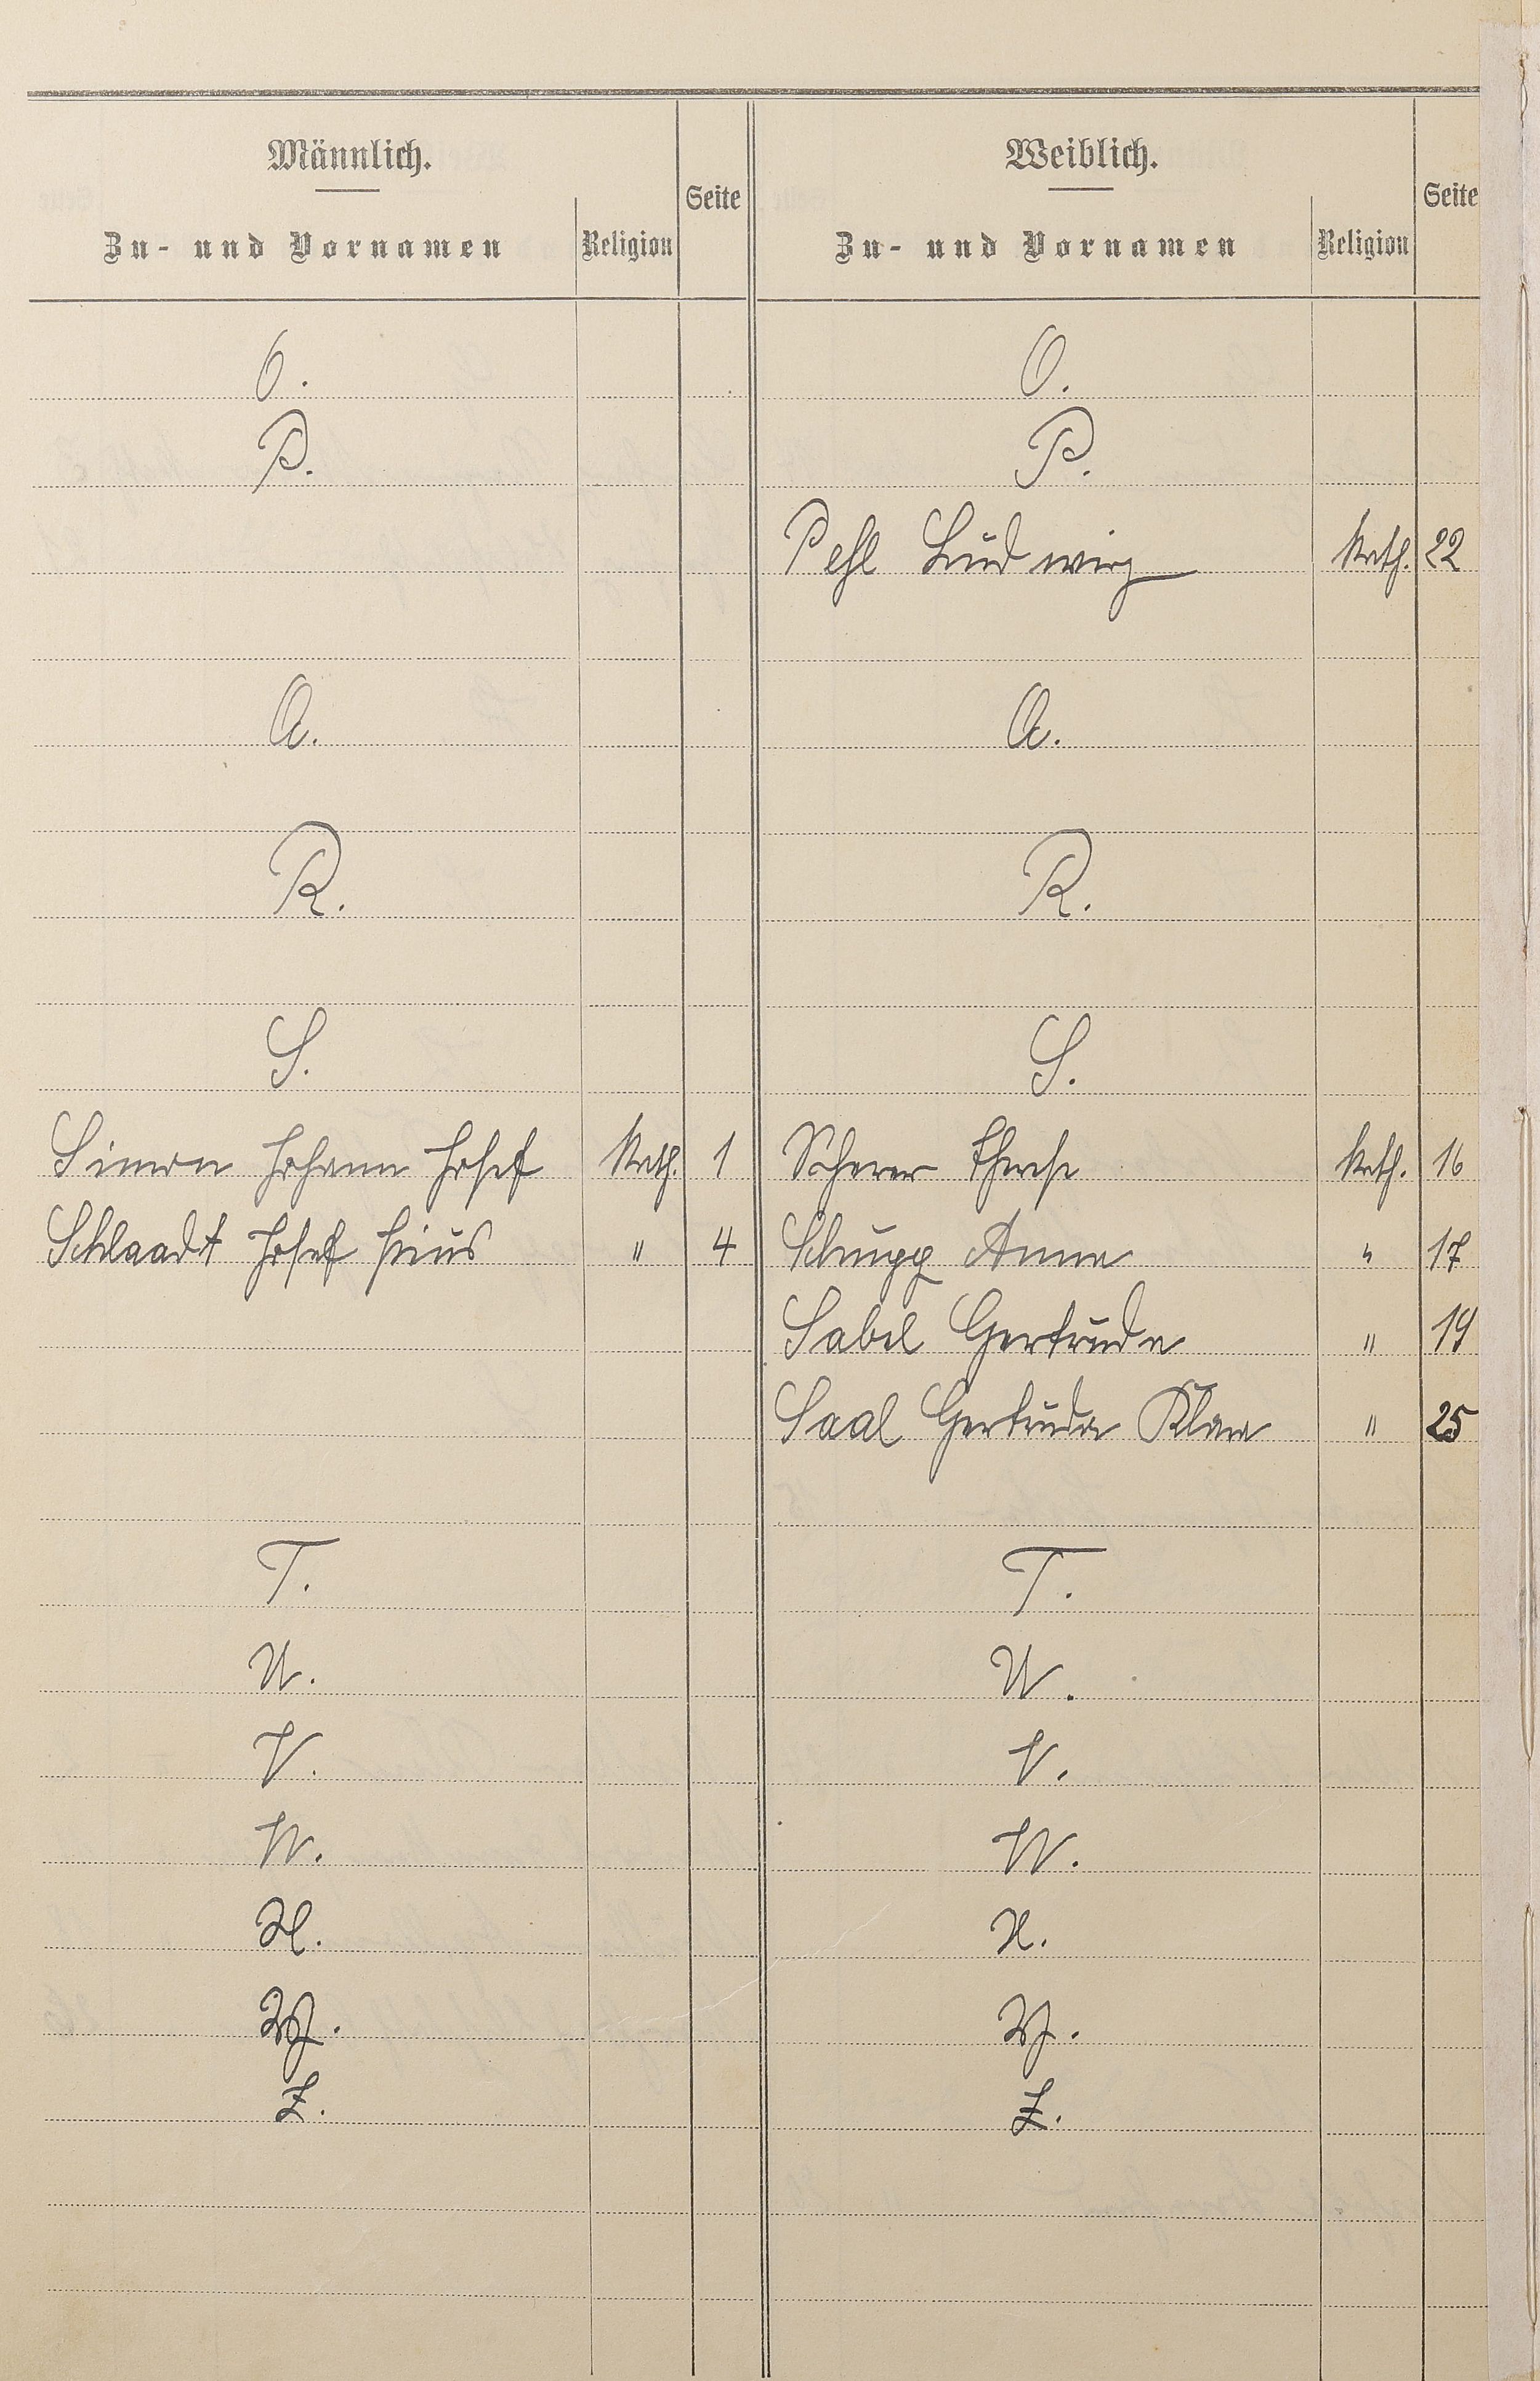 Männlich.
Zu- und Vornamen Religion Seite
Weiblich.
Zu- und Vornamen Religion Seite
O. O.
P. P.
Pehl Ludwig Kath. 22
Q. Q.
R. R.
S. S.
Simon Johann Josef Kath. 1 Scherer Therese Kath. 16
Schlaadt Josef Pius " 4 Schupp Anna " 17
Sabel Gertruda " 19
Saal Gertruda Klara " 25
T. T.
U. U.
V. V.
W. W.
X. X.
Y. Y.
Z. Z.